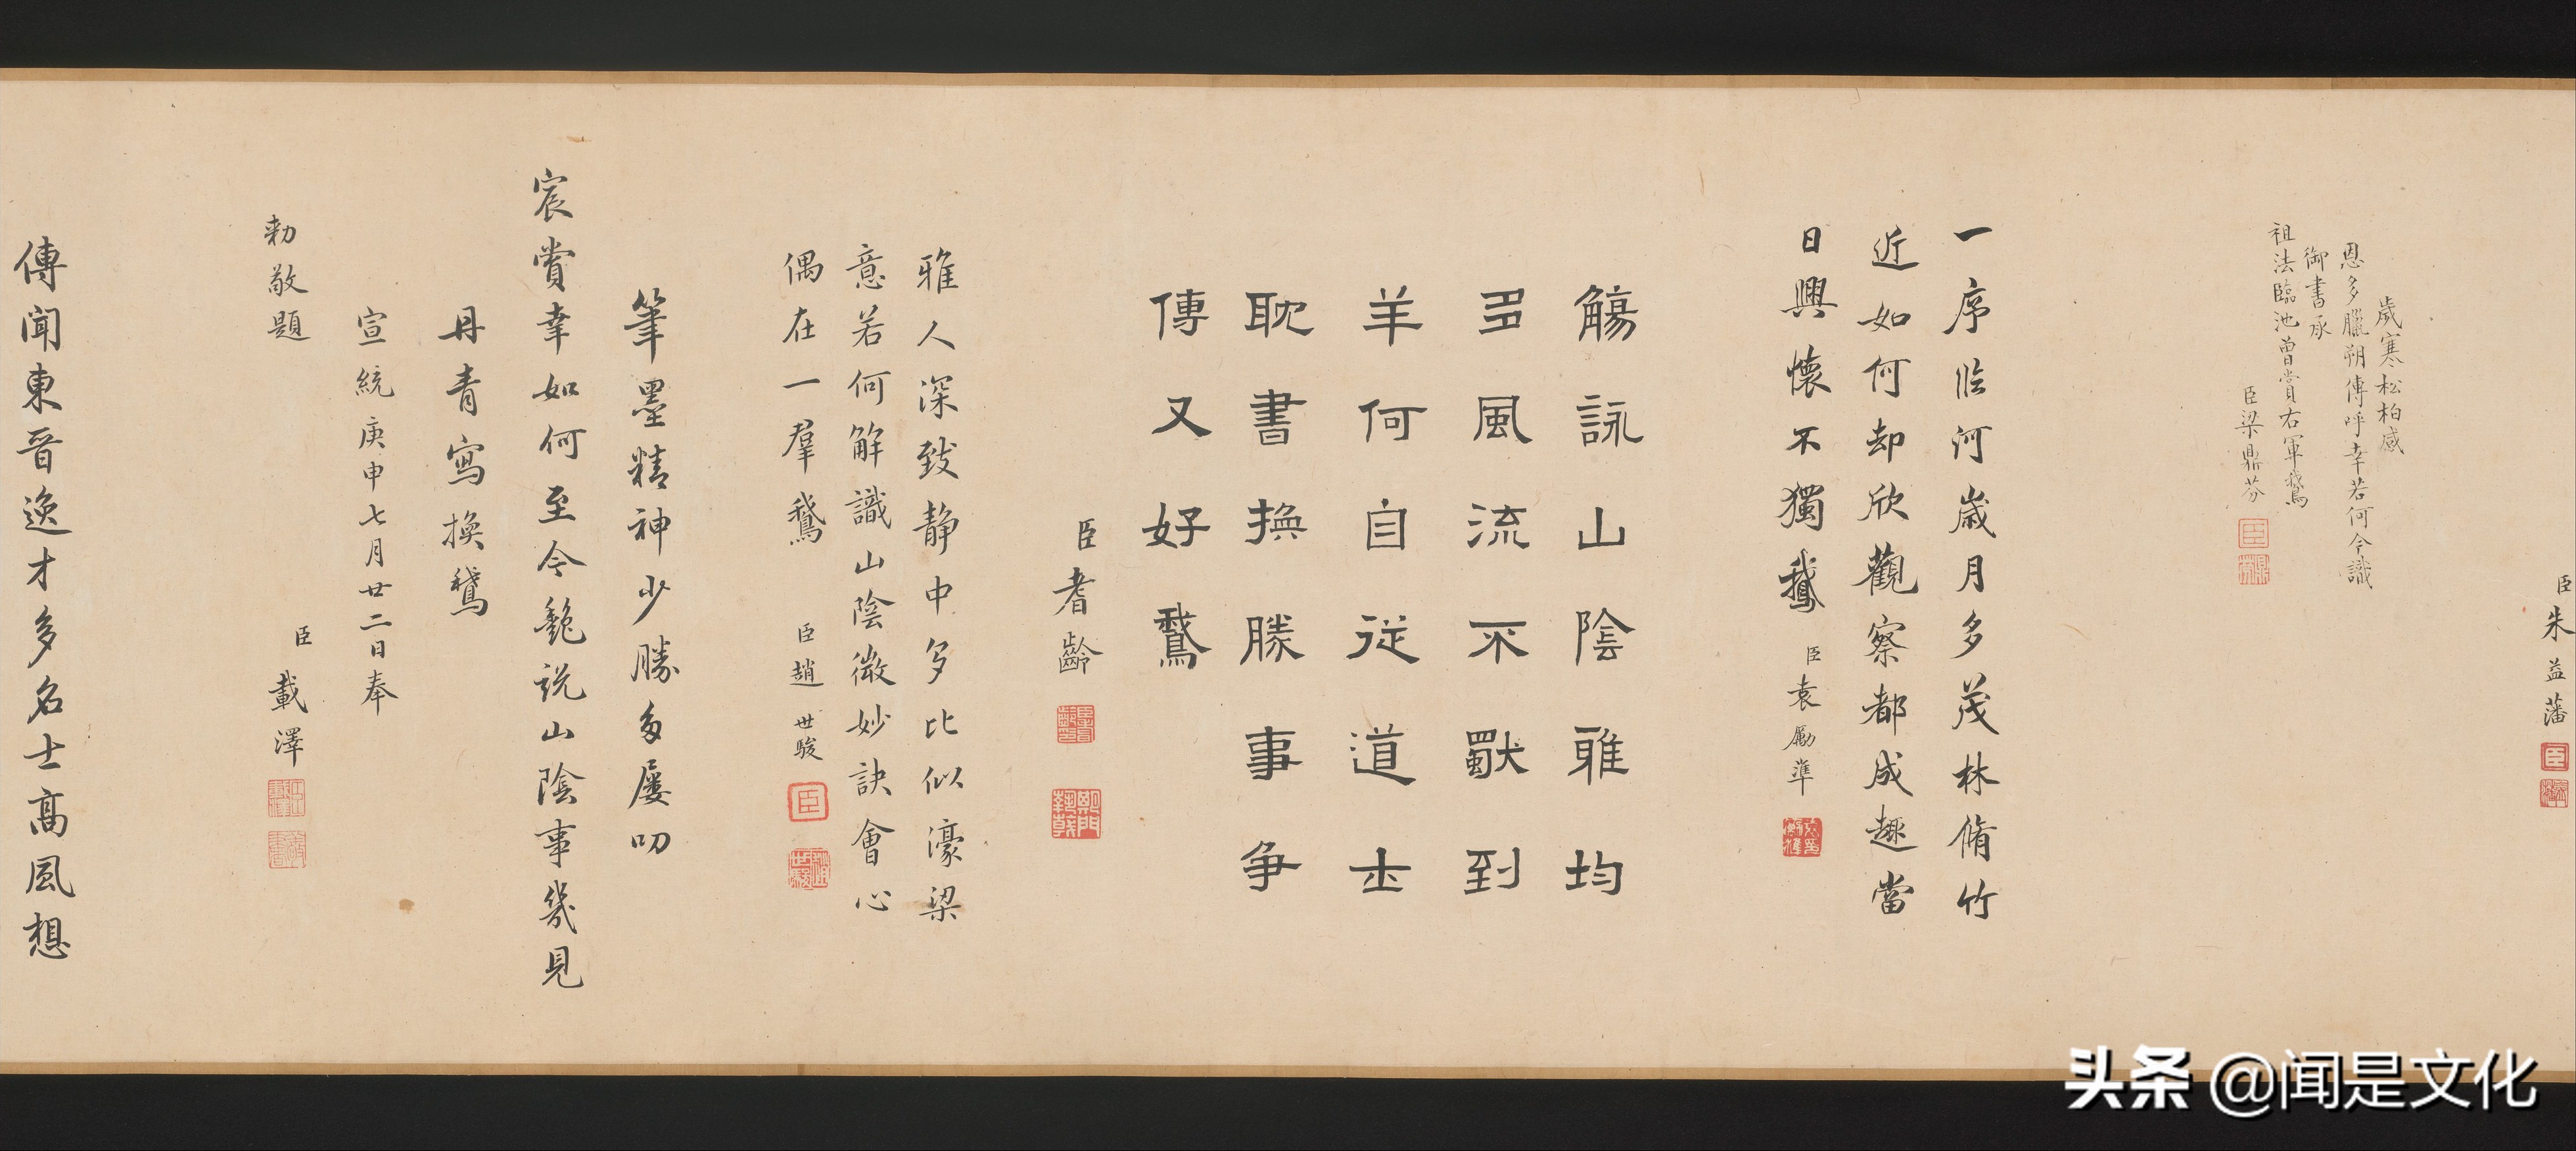 臣朱益藩
歲寒松柏感
恩多臘朔傳呼幸若何今識
御書承
祖法臨池曾賞右軍鵞
臣梁鼎芬
一序临河歲月多茂林脩竹
近如何却欣觀察都成趣當
日興懷不獨鵝
臣袁勵準
觴詠山陰雅均
多風流不獸到
羊何自從道士
耽書換勝事爭
傳又好鵞
臣耆齡
雅人深致静中多比似濠梁
意若何解識山陰微妙訣會心
偶在一羣鵞
臣趙世駿
筆墨精神少勝多屢叨
宸賞幸如何至今豔说山陰事幾見
丹青寫換鵞
宣統庚申七月廿二日奉
勅敬題
臣載澤
傳聞東晉逸才多名士高風想
头条 @闻是文化